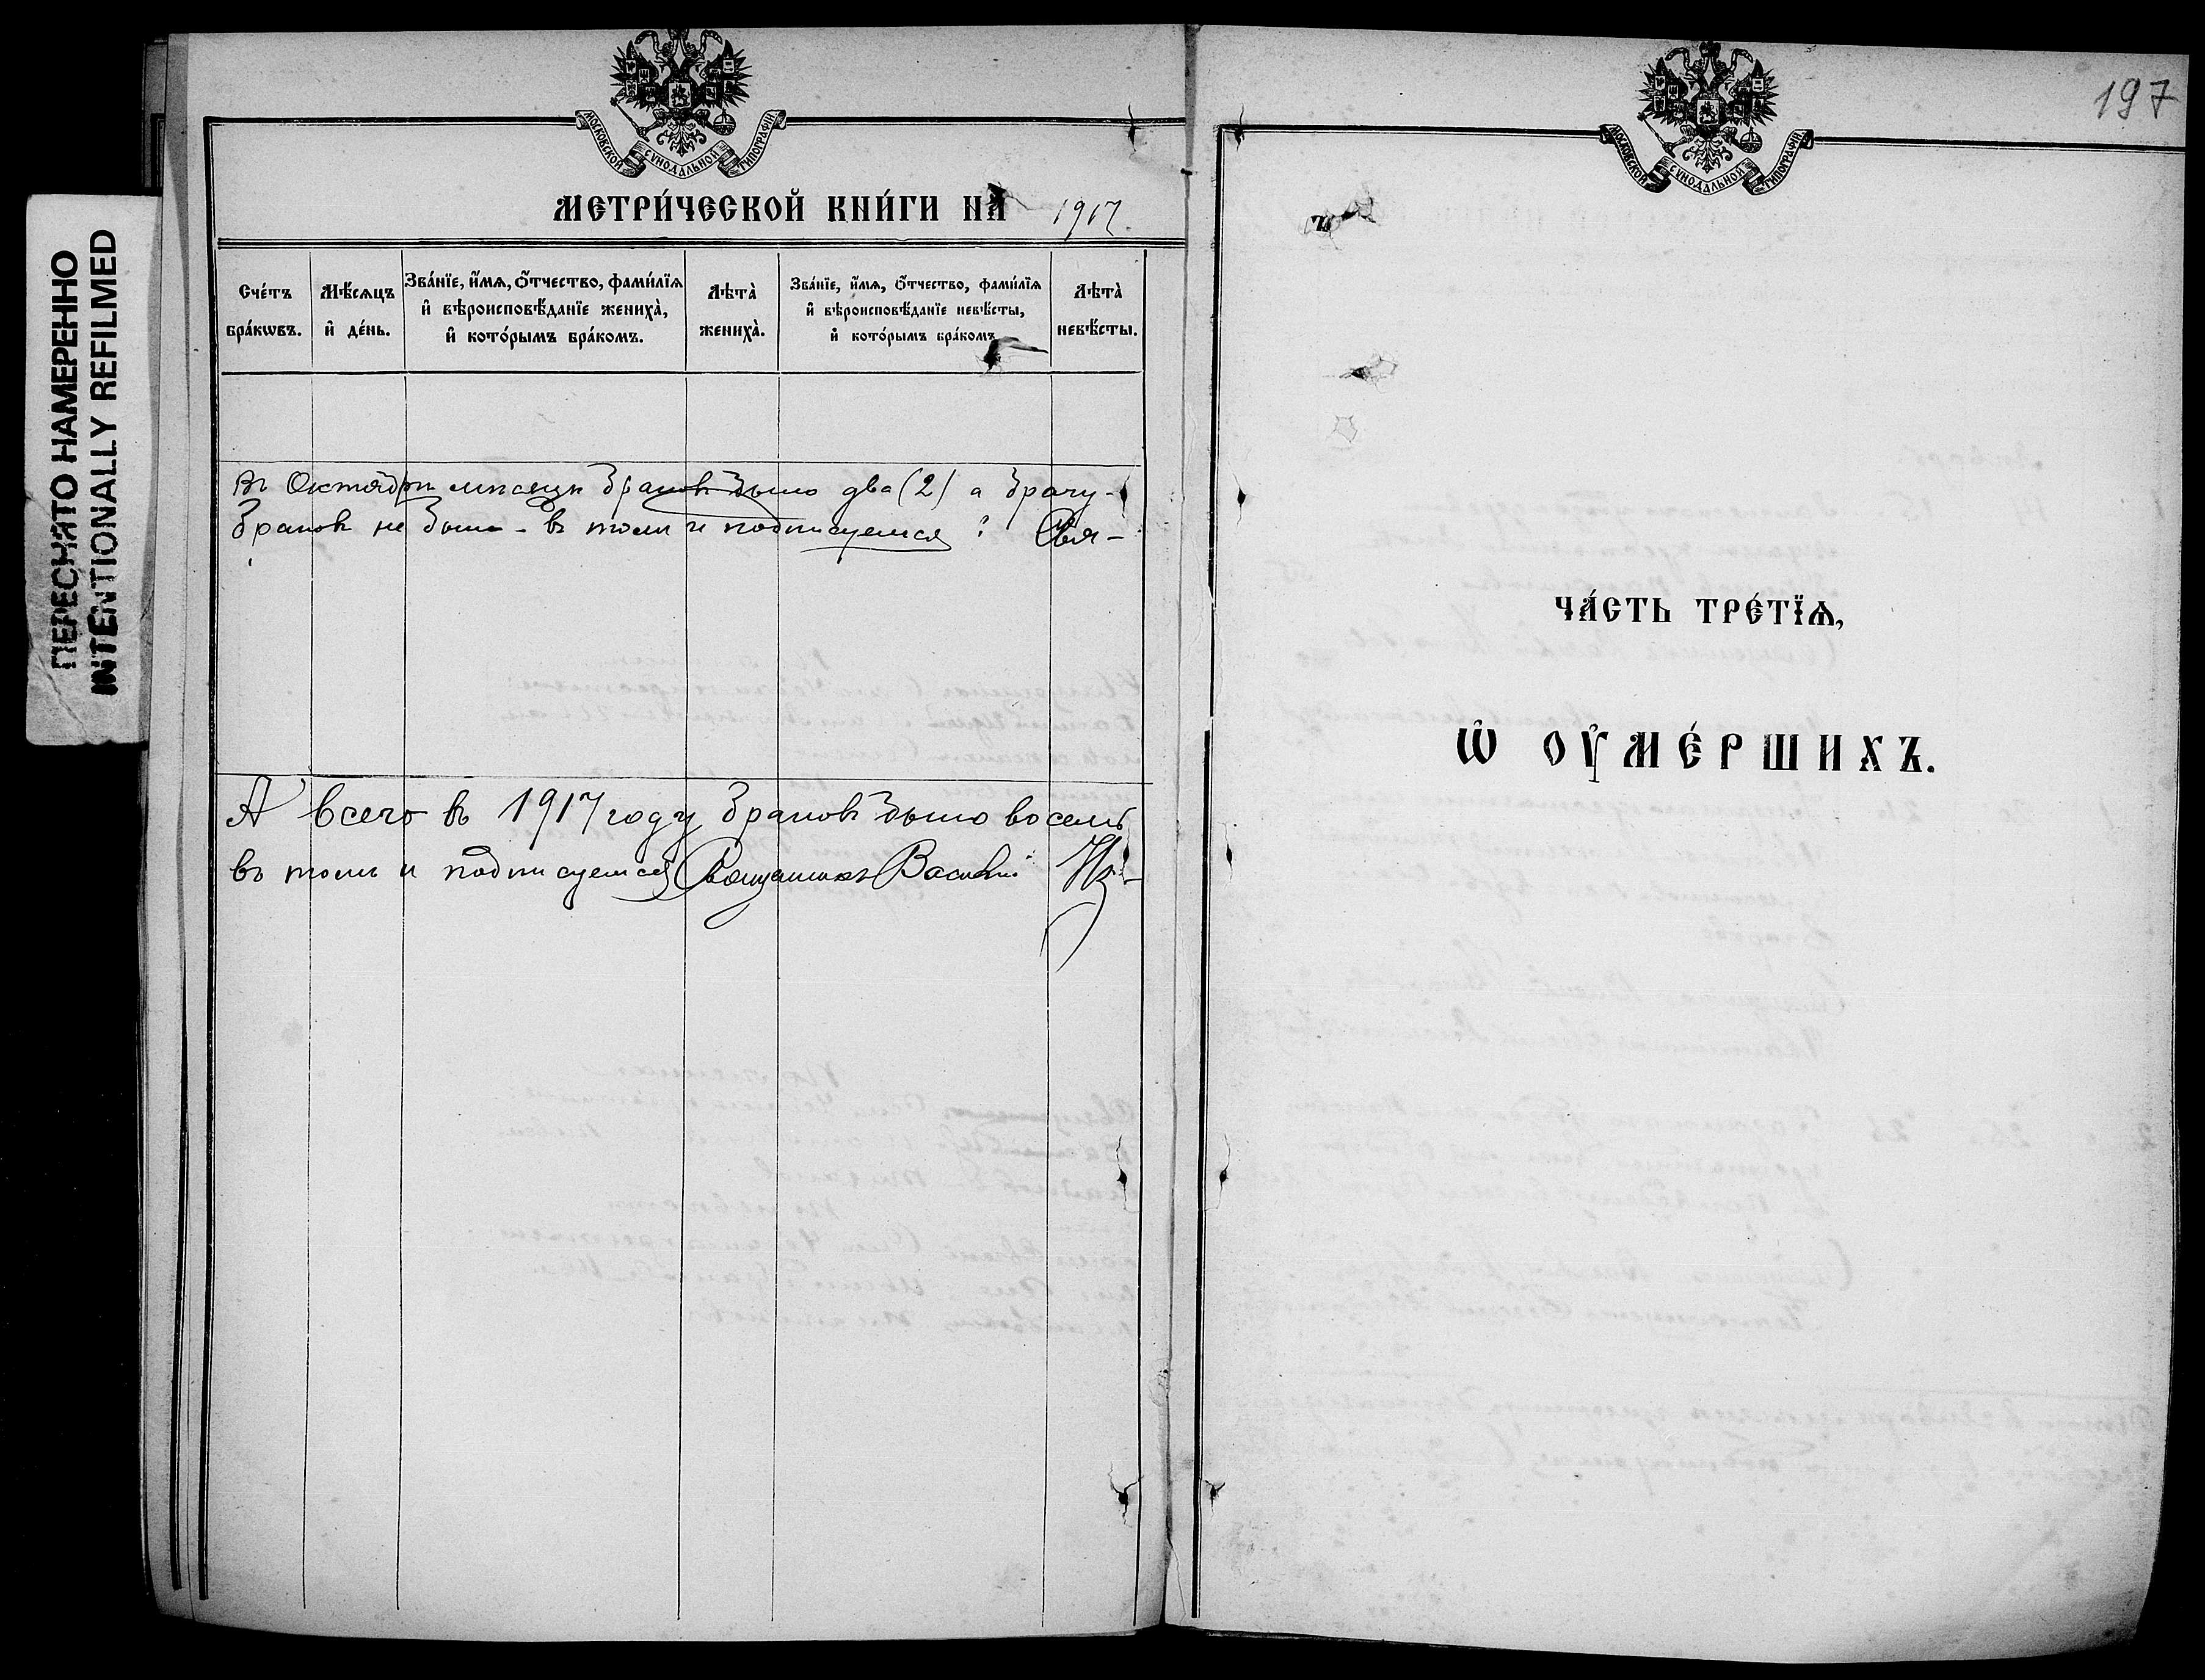 ПЕРЕСНЯТО НАМЕРЕННО
INTENTIONALLY REFILMED
МОСКОВСКОЙ СѴНОДАЛЬНОЙ ТИПОГРАФІИ
МЕТРИ́ЧЕСКОЙ КНИ́ГИ НА 1917.
Сче́тъ бра́кѡвъ.
Мѣ́сяцъ и҆ де́нь.
Зва́нїе, и҆́мѧ, ѻ҆́тчество, фами́лїѧ
и҆ вѣроисповѣ́данїе жениха̀,
и҆ кото́рымъ бра́комъ.
Лѣта̀ жениха̀.
Зва́нїе, и҆́мѧ, ѻ҆́тчество, фами́лїѧ
и҆ вѣроисповѣ́данїе невѣ́сты,
и҆ кото́рымъ бра́комъ
Лѣта̀ невѣ́сты.
Въ Октябрѣ мѣсяцѣ браковъ было два (2) а
браковъ не было - въ томъ и подписуемся: Свя-
А всего въ 1917 году браковъ было восемь
въ томъ и подписуемся Священникъ Василій
197
МОСКОВСКОЙ СѴНОДАЛЬНОЙ ТИПОГРАФІИ
ЧА́СТЬ ТРЕ́ТЇѦ,
Ѡ҆ ОУ҆МЕ́РШИХЪ.